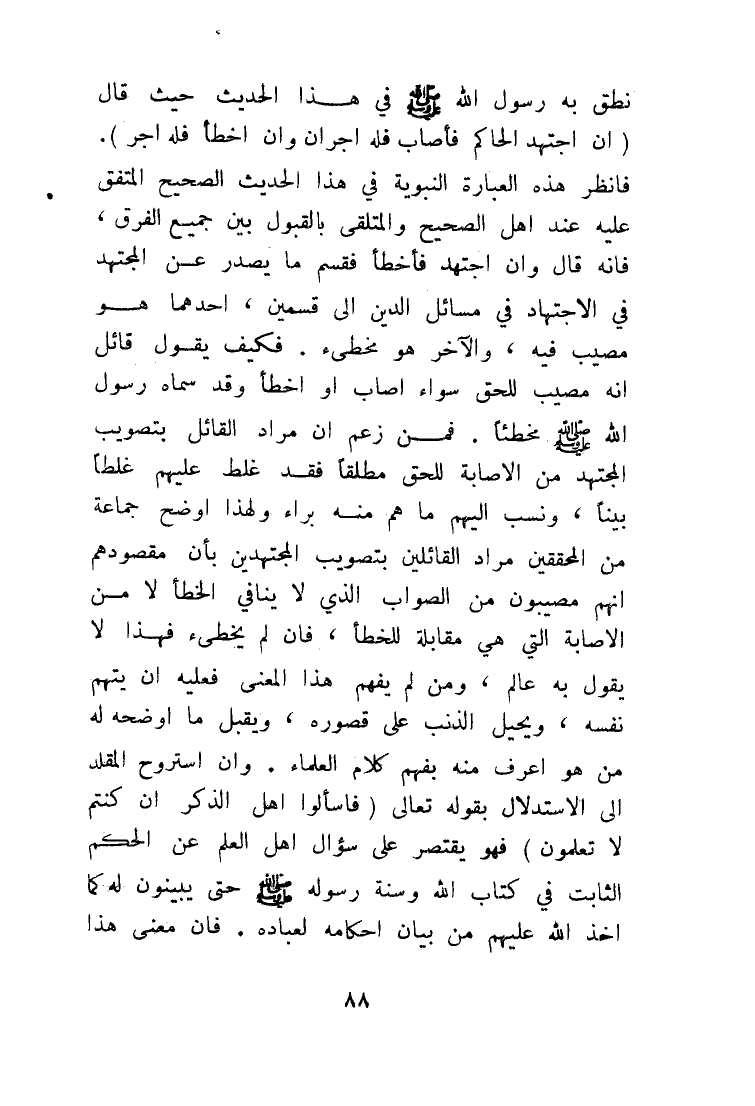 نطق به رسول الله ﷺ في هـذا الحديث حيث قال
( ان اجتهد الحاكم فأصاب فله اجران وان اخطأ فله اجر ).
فانظر هذه العبارة النبوية في هذا الحديث الصحيح المتفق
عليه عند اهل الصحيح والمتلقى بالقبول بين جميع الفرق ،
فانه قال وان اجتهد فأخطأ فقسم ما يصدر عـن المجتهد
في الاجتهاد في مسائل الدين الى قسمين ، احدهما هـو
مصيب فيه ، والآخر هو مخطىء . فكيف يقول قائل
انه مصيب للحق سواء اصاب او اخطأ وقد سماه رسول
الله ﷺ مخطئاً . فمـن زعم ان مراد القائل بتصويب
المجتهد من الاصابة للحق مطلقاً فقـد غلط عليهم غلطاً
بيناً ، ونسب اليهم ما هم منـه براء ولهذا اوضح جماعة
من المحققين مراد القائلين بتصويب المجتهدين بأن مقصودهم
انهم مصيبون من الصواب الذي لا ينافي الخطأ لا مـن
الاصابة التي هي مقابلة للخطأ ، فان لم يخطىء فهـذا لا
يقول به عالم ، ومن لم يفهم هذا المعنى فعليه ان يتهم
نفسه ، ويحيل الذنب على قصوره ، ويقبل ما اوضحه له
من هو اعرف منه بفهم كلام العلماء . وان استروح المقلد
الى الاستدلال بقوله تعالى ( فاسألوا اهل الذكر ان كنتم
لا تعلمون ) فهو يقتصر على سؤال اهل العلم عن الحكم
الثابت في كتاب الله وسنة رسوله ﷺ حتى يبينون له كما
اخذ الله عليهم من بيان احكامه لعباده . فان معنى هذا
٨٨